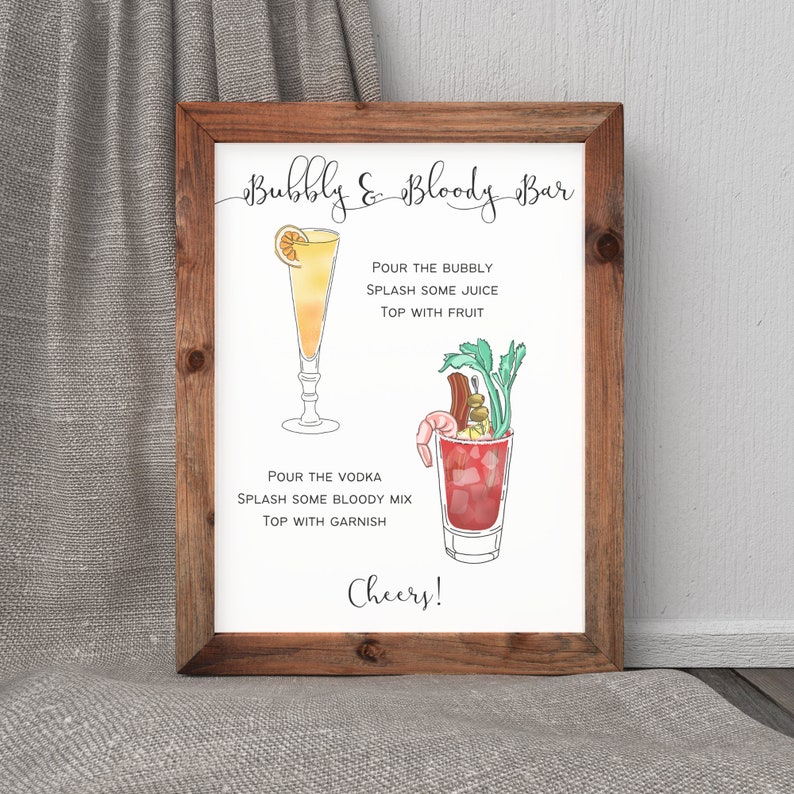 Bubbly & Bloody Bar
Pour the bubbly
Splash some juice
Top with fruit
Pour the vodka
Splash some bloody mix
Top with garnish
Cheers!